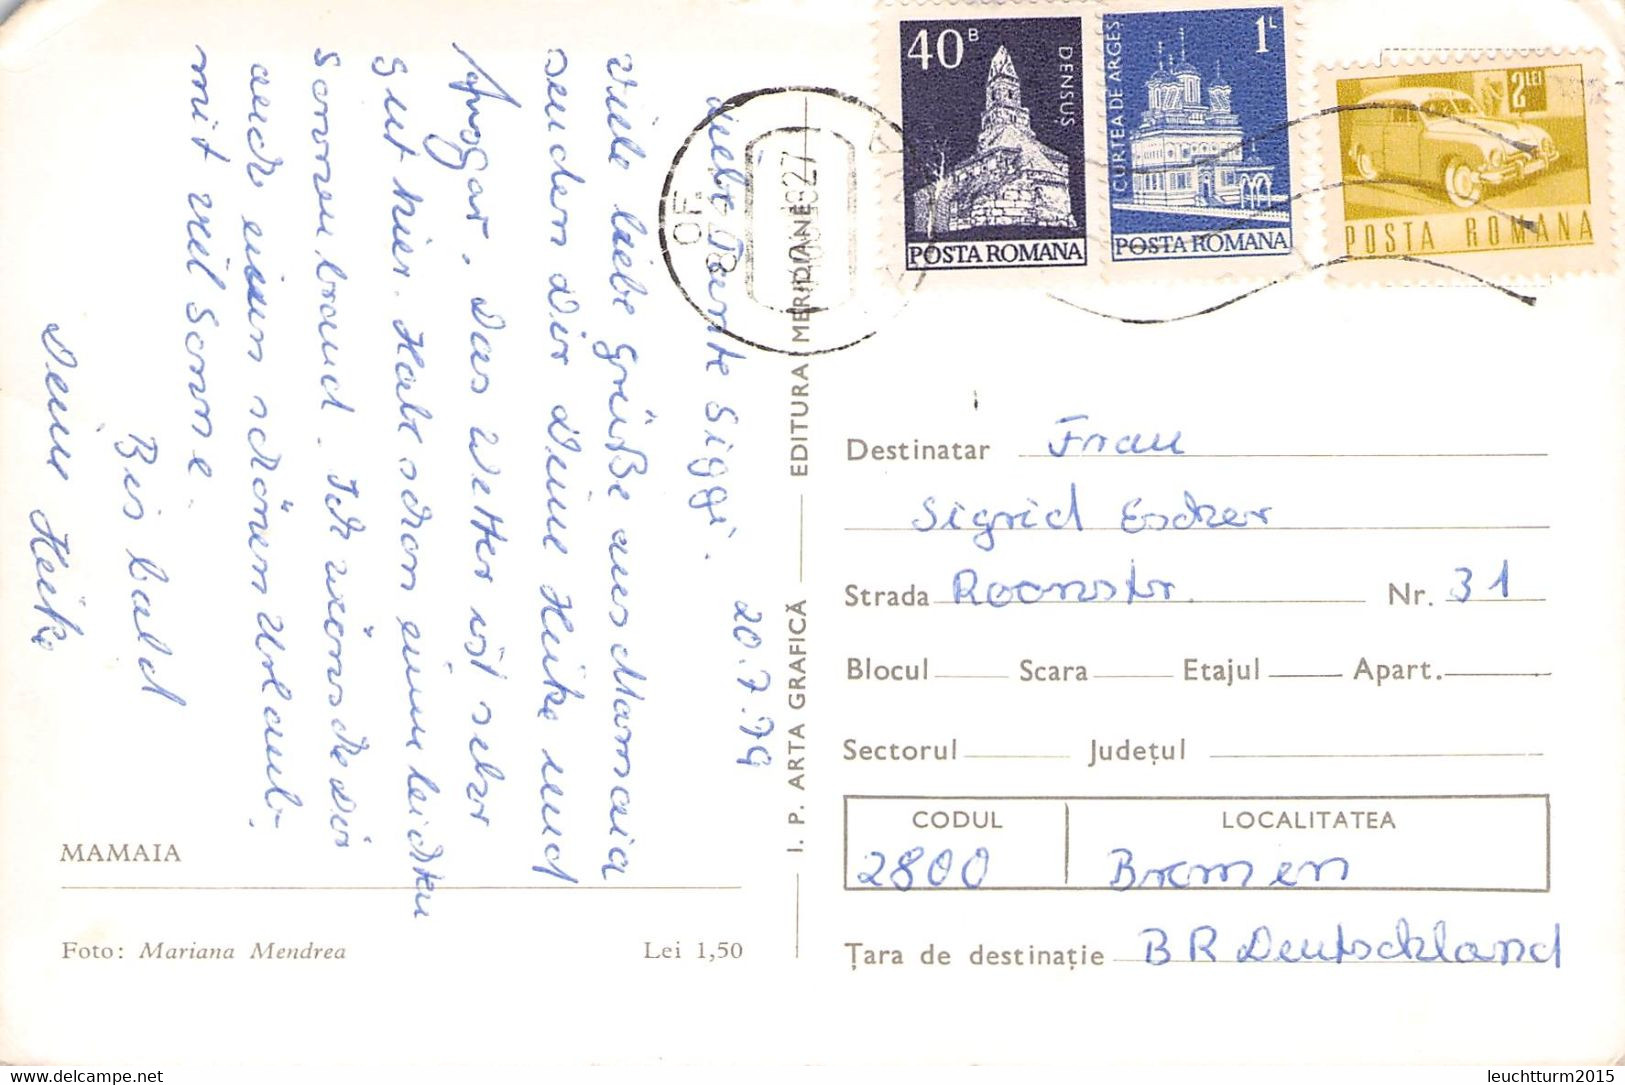 40 B
DENSUȘ
POSTA ROMANA
1 L
CURTEA DE ARGEȘ
POSTA ROMANA
2 LEI
POSTA ROMANA
OF.
8727
20.7.79
Liebe Tante Siggi.
Viele liebe Grüße aus Mamaia
senden Dir Deine Heike und
Ansgar. Das Wetter ist sehr
gut hier. Habe schon einen leichten
Sonnenbrand. Ich wünsche Dir
auch einen schönen Urlaub.
mit viel Sonne.
Bis bald
Deine Heike
MAMAIA
Foto: Mariana Mendrea
Lei 1,50
I. P. ARTA GRAFICĂ
EDITURA MERIDIANE
Destinatar Frau
Sigrid Escher
Strada Roonstr. Nr. 31
Blocul Scara Etajul Apart.
Sectorul Județul
CODUL LOCALITATEA
2800 Bremen
Țara de destinație BR Deutschland
leuchtturm2015